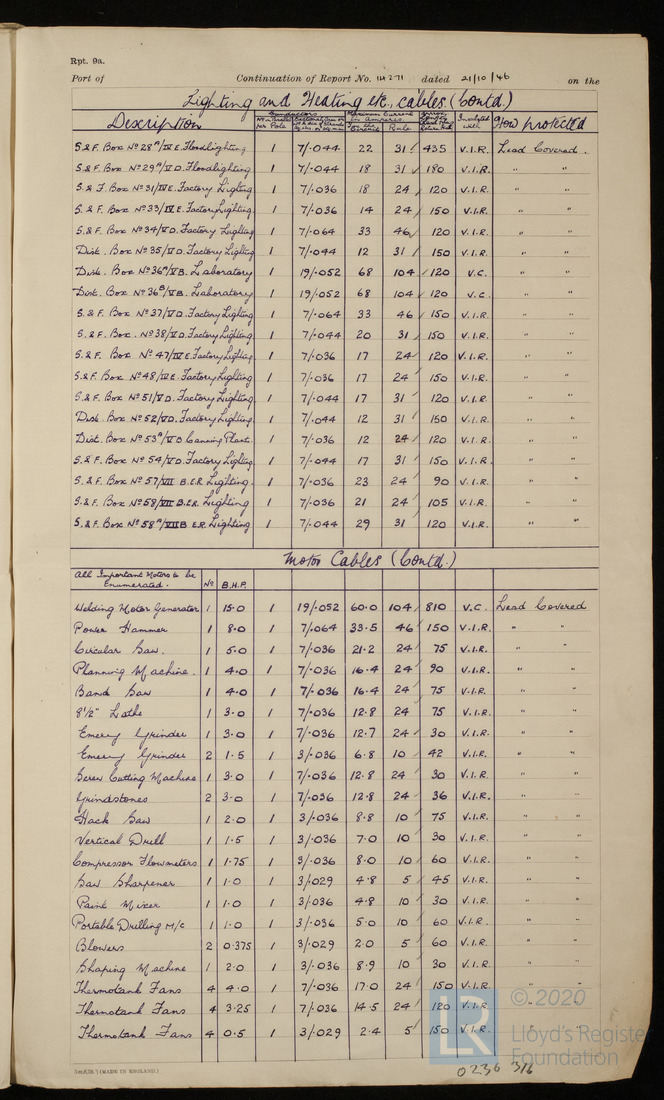 Rpt. 9a.
Port of Continuation of Report No. 14271 dated 21/10/46 on the
Lighting and Heating etc., cables (Contd.)
Description Conductors Maximum Current in Amperes. Insulated with How protected
per Pole Circuit Rule
S.&F. Box Nº 28ᴬ/IV E. Floodlighting 1 7/.044 22 31 435 V.I.R. Lead Covered.
S.&F. Box Nº 29ᴬ/V D. Floodlighting 1 7/.044 18 31 180 V.I.R. " "
S.& F. Box Nº 31/IV E. Factory Lighting 1 7/.036 18 24 120 V.I.R. " "
S.&F. Box Nº 33/IV E. Factory Lighting. 1 7/.036 14 24 150 V.I.R. " "
S.&F. Box Nº 34/V D. Factory Lighting 1 7/.064 33 46 120 V.I.R. " "
Dist. Box Nº 35/V D. Factory Lighting 1 7/.044 12 31 150 V.I.R. " "
Dist. Box Nº 36ᴬ/V B. Laboratory 1 19/.052 68 104 120 V.C. " "
Dist. Box Nº 36ᴮ/V B. Laboratory 1 19/.052 68 104 120 V.C. " "
S.&F. Box Nº 37/V D. Factory Lighting 1 7/.064 33 46 150 V.I.R. " "
S.&F. Box. Nº 38/V D. Factory Lighting 1 7/.044 20 31 150 V.I.R. " "
S.&F. Box Nº 47/IV E. Factory Lighting 1 7/.036 17 24 120 V.I.R. " "
S.&F. Box Nº 48/IV E. Factory Lighting 1 7/.036 17 24 150 V.I.R. " "
S.&F. Box Nº 51/V D. Factory Lighting 1 7/.044 17 31 120 V.I.R. " "
Dist. Box Nº 52/V D. Factory Lighting. 1 7/.044 12 31 150 V.I.R. " "
Dist. Box Nº 53ᴬ/V D Canning Plant. 1 7/.036 12 24 120 V.I.R. " "
S.&F. Box Nº 54/V D. Factory Lighting 1 7/.044 17 31 150 V.I.R. " "
S.&F. Box Nº 57/VII B.E.R. Lighting. 1 7/.036 23 24 90 V.I.R. " "
S.&F. Box Nº 58/VII B.E.R. Lighting 1 7/.036 21 24 105 V.I.R. " "
S.&F. Box Nº 58ᴬ/VII B E.R. Lighting 1 7/.044 29 31 120 V.I.R. " "
Motor Cables (Contd.)
All Important Motors to be Enumerated. Nº B.H.P.
Welding Motor Generator 1 15.0 1 19/.052 60.0 104 810 V.C. Lead Covered
Power Hammer 1 8.0 1 7/.064 33.5 46 150 V.I.R. " "
Circular Saw. 1 5.0 1 7/.036 21.2 24 75 V.I.R. " "
Planning Machine. 1 4.0 1 7/.036 16.4 24 90 V.I.R. " "
Band Saw 1 4.0 1 7/.036 16.4 24 75 V.I.R. " "
8½" Lathe 1 3.0 1 7/.036 12.8 24 75 V.I.R. " "
Emery Grinder 1 3.0 1 7/.036 12.7 24 30 V.I.R. " "
Emery Grinder 2 1.5 1 3/.036 6.8 10 42 V.I.R. " "
Screw Cutting Machine 1 3.0 1 7/.036 12.8 24 30 V.I.R. " "
Grindstones 2 3.0 1 7/.036 12.8 24 36 V.I.R. " "
Hack Saw 1 2.0 1 3/.036 8.8 10 75 V.I.R. " "
Vertical Drill 1 1.5 1 3/.036 7.0 10 30 V.I.R. " "
Compressor Flowmeters 1 1.75 1 3/.036 8.0 10 60 V.I.R. " "
Saw Sharpener 1 1.0 1 3/.029 4.8 5 45 V.I.R. " "
Paint Mixer 1 1.0 1 3/.036 4.8 10 30 V.I.R. " "
Portable Drilling M/c 1 1.0 1 3/.036 5.0 10 60 V.I.R. " "
Blowers 2 0.375 1 3/.029 2.0 5 60 V.I.R. " "
Shaping Machine 1 2.0 1 3/.036 8.9 10 30 V.I.R. " "
Thermotank Fans 4 4.0 1 7/.036 17.0 24 150 V.I.R. " "
Thermotank Fans 4 3.25 1 7/.036 14.5 24 120 V.I.R. " "
Thermotank Fans 4 0.5 1 3/.029 2.4 5 150 V.I.R. " "
LR © 2020
Lloyd's Register
Foundation
(MADE IN ENGLAND)
0236 316